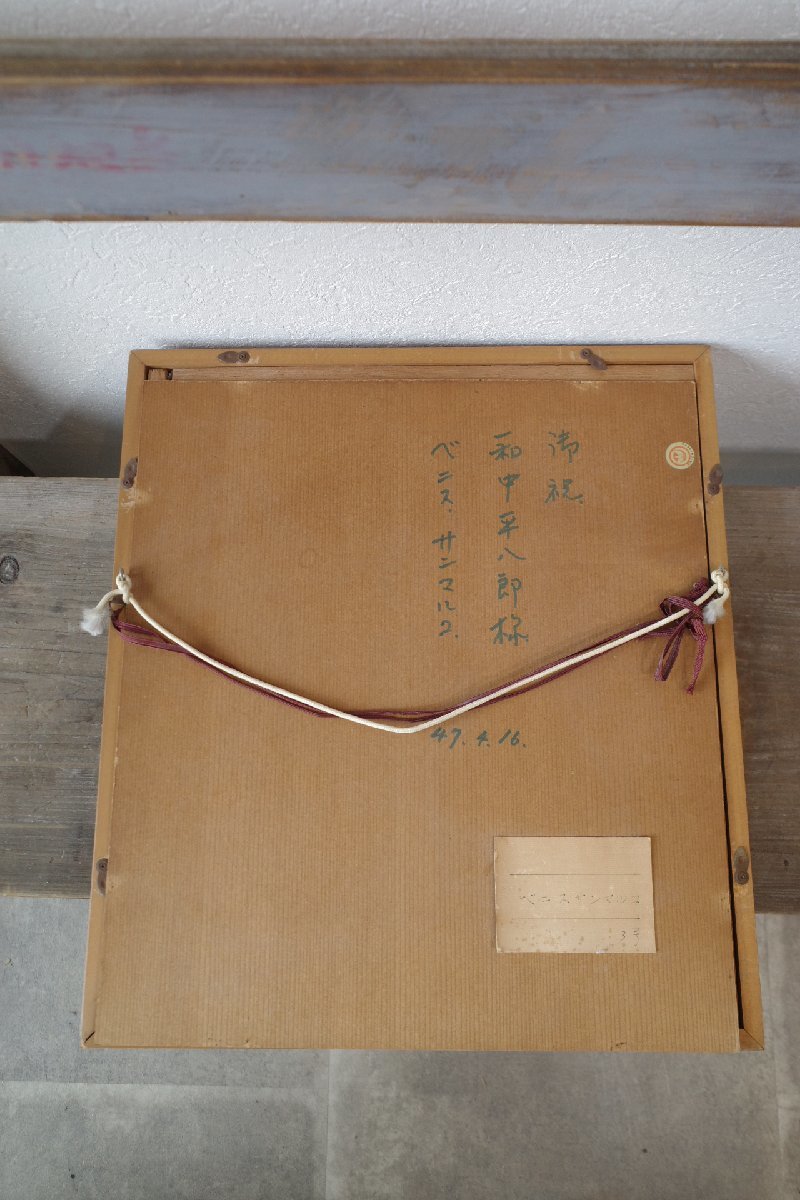 御祝.
和中平八郎様
ベニス.サンマルコ.
47.4.16.
ベニスサンマルコ
3号